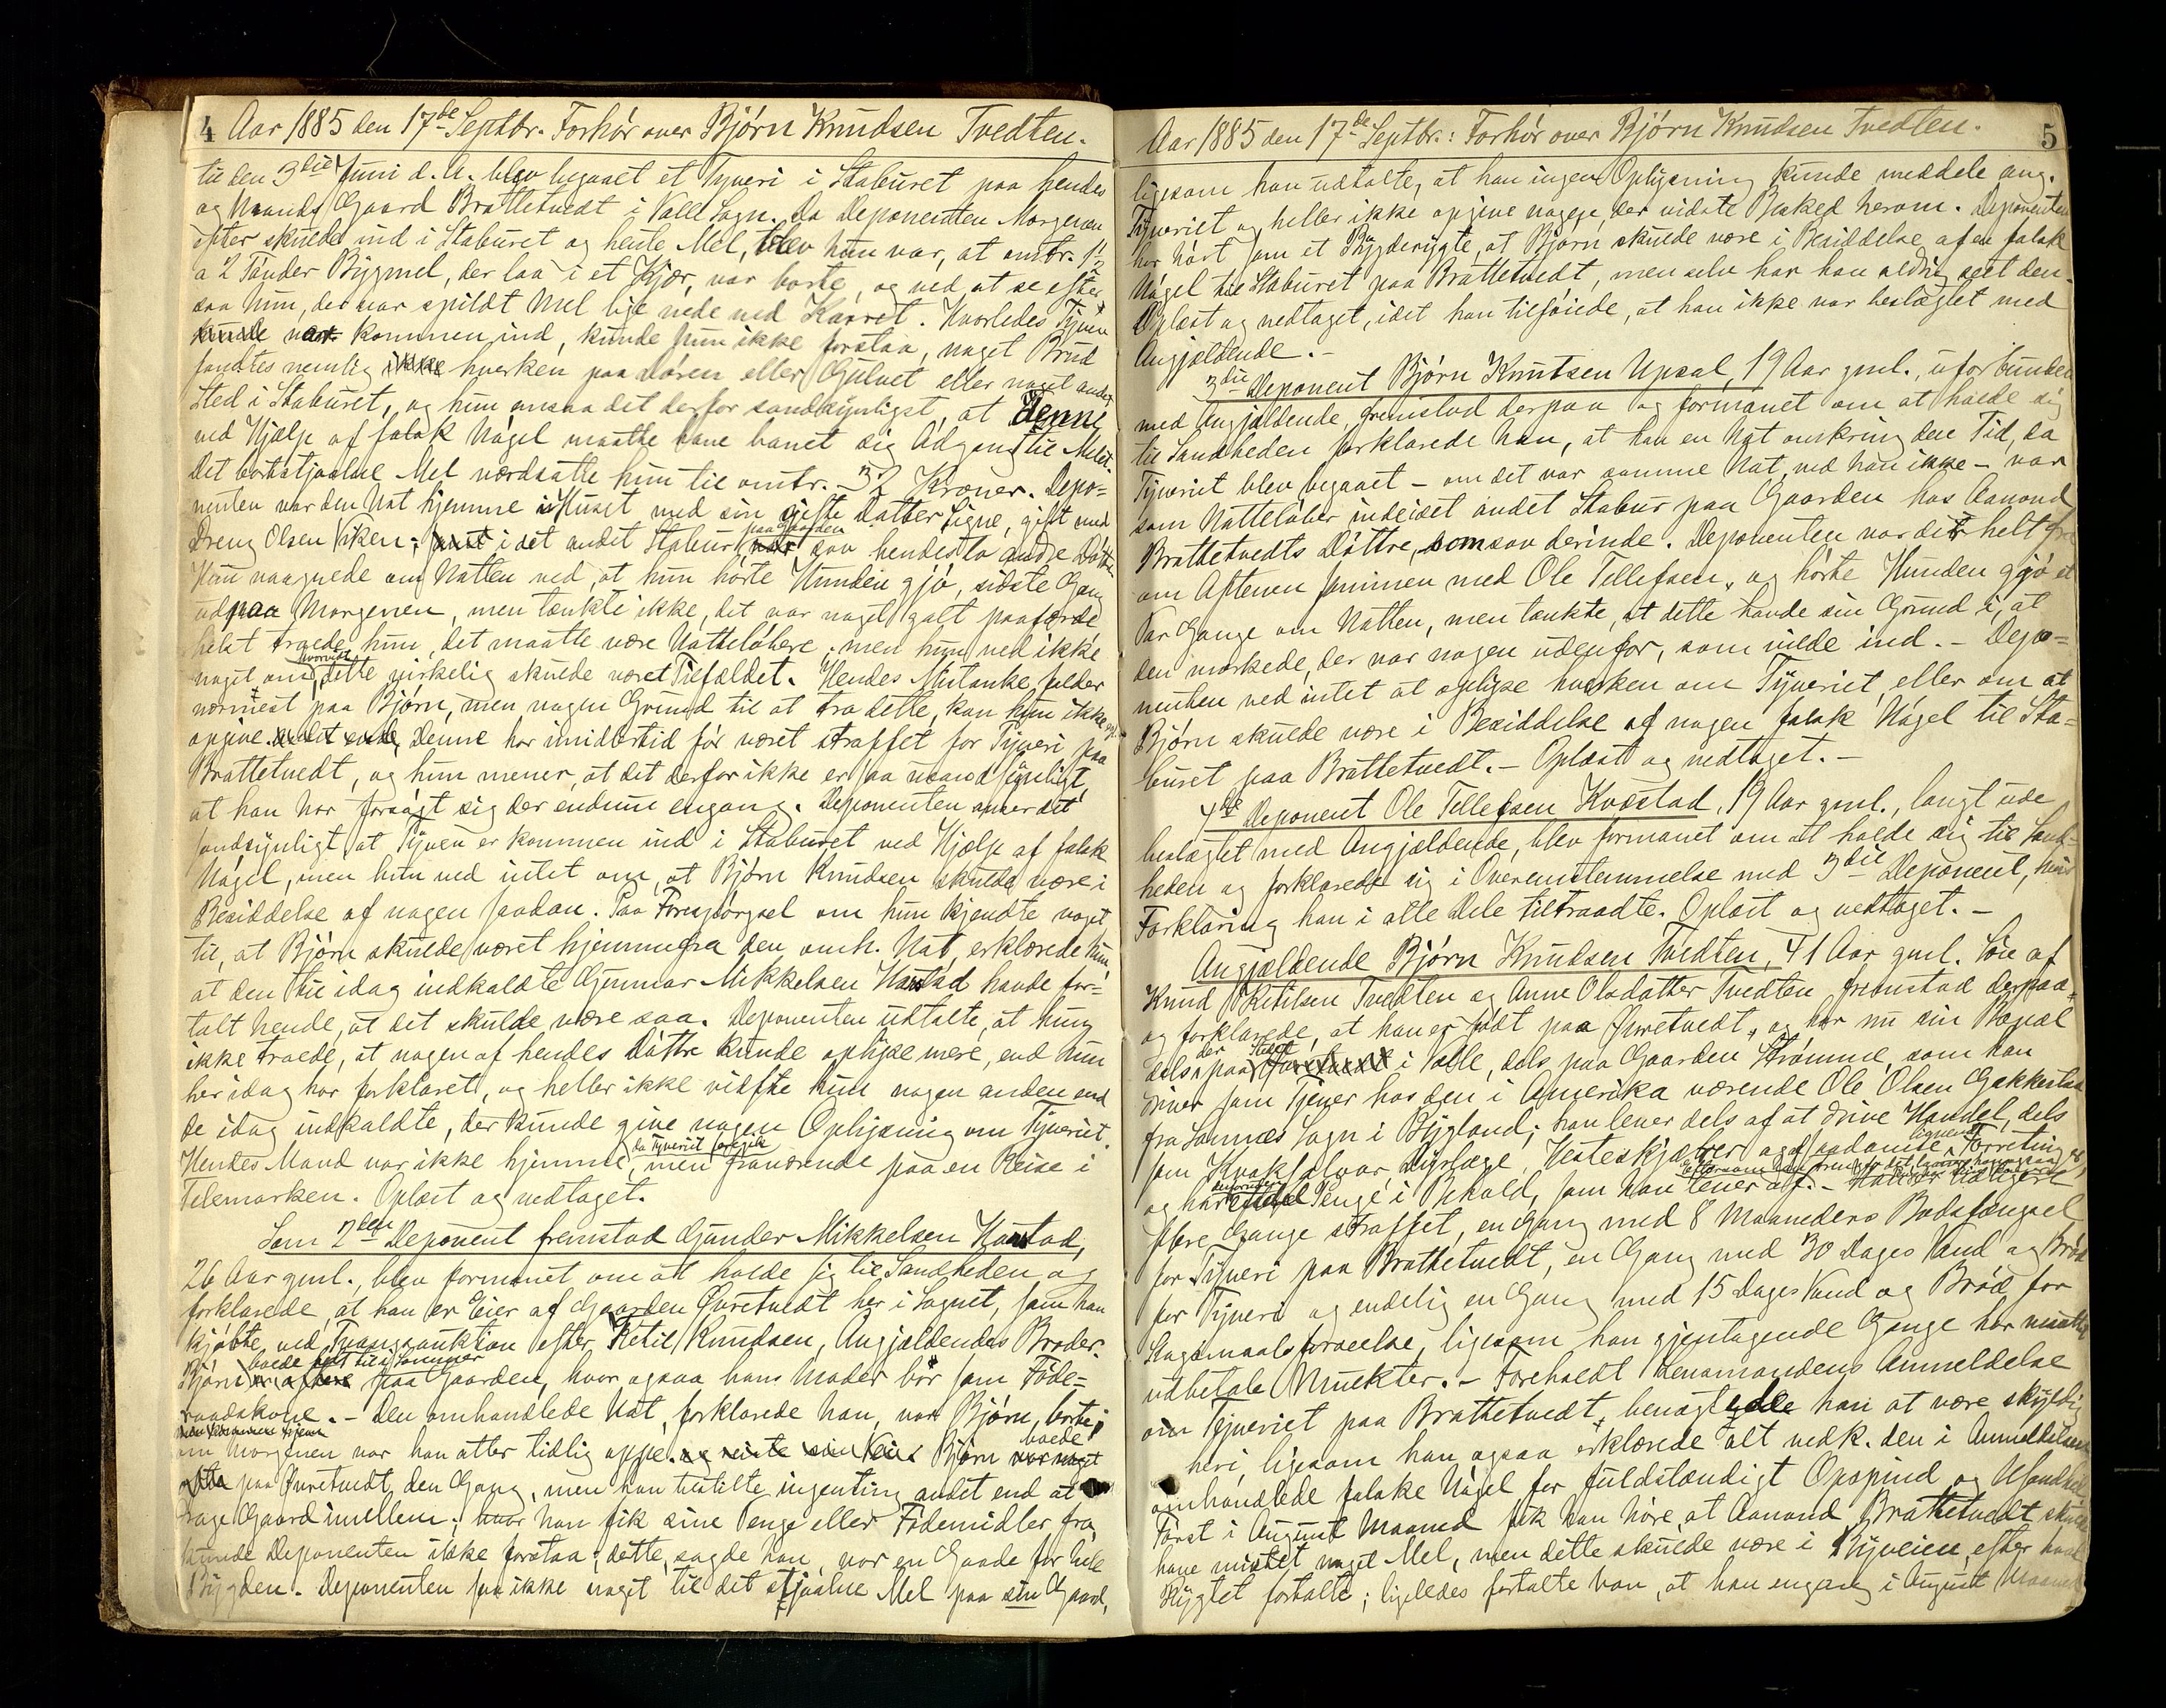 4 Aar 1885 den 17de Septbr. Forhör over Björn Knudsen Tvedten.
til den 3die Juni d. A. blev begaaet et Tyveri i Staburet paa hendes
og Mands Gaard Brattetvedt i Valle Sogn. Da Deponenten Morgenen
efter skulde ind i Staburet og hente Mel, blev hun var, at omtr. 1½
a 2 Tönder Bygmel, der laa i et Kjar, var borte, og ved at se efter
saa hun, der var spildt Mel lige nede ved Karret. Hvorledes Tyven
kunde være kommen ind, kunde hun ikke forstaa, noget Brud
fandtes nemlig ikke hverken paa Dören eller Gulvet eller noget andet
Sted i Staburet, og hun ansaa det derfor sandsynligst, at Denne
ved Hjælp af falsk Nögel maatte have banet sig Adgang til Melet.
Det bortstjaalne Mel værdsatte hun til omtr. 32 Kroner. Depo=
nenten var den Nat hjemme i Huset med sin gifte Datter Signe, gift med
Dreng Olsen Viken; i det andet Stabur paa Gaarden sov hendes to andre Döttre.
Hun vaagnede om Natten ved, at hun hörte Hunden gjö, sidste Gang
ud paa Morgenen, men tænkte ikke, det var noget galt paafærde
helst troede hun, det maatte være Natteløbere; men hun ved ikke
noget om, hvorvidt dette virkelig skulde været Tilfældet. Hendes Mistanke falder
nærmest paa Björn, men nogen Grund til at tro dette, kan hun ikke
opgive. Denne har imidlertid för været straffet for Tyveri paa
Brattetvedt, og hun mener, at det derfor ikke er saa usandsynligt,
at han har forsögt sig der endnu engang. Deponenten anser det
sandsynligt, at Tyven er kommen ind i Staburet ved Hjælp af falsk
Nögel, men hun ved intet om, at Björn Knudsen skulde være i
Besiddelse af nogen saadan. Paa Forespörgsel om hun kjendte noget
til, at Björn skulde været hjemmefra den omh. Nat, erklærede hun,
at den til idag indkaldte Gunnar Mikkelsen Harstad havde for=
talt hende, at det skulde være saa. Deponenten udtalte, at hun
ikke troede, at nogen af hendes Döttre kunde oplyse mere, end hun
her idag har forklaret, og heller ikke vidste hun nogen anden end
de idag indkaldte, der kunde give nogen Oplysning om Tyveriet.
Hendes Mand var ikke hjemme, da Tyveriet foregik, men fraværende paa en Reise i
Telemarken. Oplæst og vedtaget.
Som 2den Deponent fremstod Gunder Mikkelsen Harstad,
26 Aar gml., blev formanet om at holde sig til Sandheden og
forklarede, at han er Eier af Gaarden Övretvedt her i Sognet, som han
kjöbte ved Tvangsauktion efter Ketil Knudsen, Angjældendes Broder.
Björn boede helt til i Sommer paa Gaarden, hvor ogsaa hans Moder bor som Föde=
raadskone. - Den omhandlede Nat, forklarede han, var Björn borte;
om Morgenen var han atter tidlig oppe. Björn boede
paa Övretvedt den Gang, men han bestilte ingenting andet end at
drage Gaard imellem; hvor han fik sine Penge eller Födemidler fra,
kunde Deponenten ikke forstaa; dette, sagde han, var en Gaade for hele
Bygden. Deponenten saa ikke noget til det stjaalne Mel paa sin Gaard,
Aar 1885 den 17de Septbr.: Forhör over Björn Knudsen Tvedten. 5
ligesom han udtalte, at han ingen Oplysning kunde meddele ang.
Tyveriet og heller ikke opgive nogen, der vidste Besked herom. Deponenten
har hört som et Bygderygte, at Björn skulde være i Besiddelse af en falsk
Nögel til Staburet paa Brattetvedt, men selv har han aldrig seet den.
Oplæst og vedtaget, idet han tilföiede, at han ikke var beslægtet med
Angjældende. -
3die Deponent Björn Knutsen Upsal, 19 Aar gml., uforbunden
med Angjældende, fremstod derpaa og formanet om at holde sig
til Sandheden forklarede han, at han en Nat omkring den Tid, da
Tyveriet blev begaaet - om det var samme Nat, ved han ikke - var
som Natteløber inde i det andet Stabur paa Gaarden hos Aanond
Brattetvedts Döttre, som sov derinde. Deponenten var der helt fra
om Aftenen sammen med Ole Tellefsen, og hörte Hunden gjö et
Par Gange om Natten, men tænkte, at dette havde sin Grund i, at
den mærkede, der var nogen udenfor, som vilde ind. - Depo=
nenten ved intet at oplyse hverken om Tyveriet, eller om at
Björn skulde være i Besiddelse af nogen falsk Nögel til Sta=
buret paa Brattetvedt. - Oplæst og vedtaget. -
4de Deponent Ole Tellefsen Kvæstad, 19 Aar gml., langt ude
beslægtet med Angjældende, blev formanet om at holde sig til Sand=
heden og forklarede sig i Overensstemmelse med 3die Deponent, hvis
Forklaring han i alle Dele tiltraadte. Oplæst og vedtaget. -
Angjældende Björn Knudsen Tvedten, 41 Aar gml. Sön af
Knud Ketilsen Tvedten og Anne Olsdatter Tvedten fremstod derpaa
og forklarede, at han er födt paa Övretvedt, og har nu sin Bopæl
dels der paa Stedet i Valle, dels paa Gaarden Strömme, som han
driver som Tjener hos den i Amerika værende Ole Olsen Gakkestad
fra Sannæs Sogn i Bygland; han lever dels af at drive Handel, dels
som Kvaksalver, Dyrlæge, Hesteskjærer og saadanne lignende Forretninger,
og har Penge i Behold, som han lever af. -
flere Gange straffet, en Gang med 8 Maaneders Bodsfængsel
for Tyveri paa Brattetvedt, en Gang med 30 Dages Vand og Bröd
for Tyveri og endelig en Gang med 15 Dages Vand og Bröd for
Slagsmaalsforseelse, ligesom han gjentagende Gange har maattet
udbetale Mulkter. - Foreholdt Lensmandens Anmeldelse
om Tyveriet paa Brattetvedt, benægtede han at være skyldig
heri, ligesom han ogsaa erklærede alt vedk. den i Anmeldelsen
omhandlede falske Nögel for fuldstændigt Opspind og Usandhed.
Först i August Maaned fik han höre, at Aanond Brattetvedt skulde
have mistet noget Mel, men dette skulde være i Byveien, efter hvad
Rygtet fortalte; ligeledes fortalte han, at han engang i August Maaned